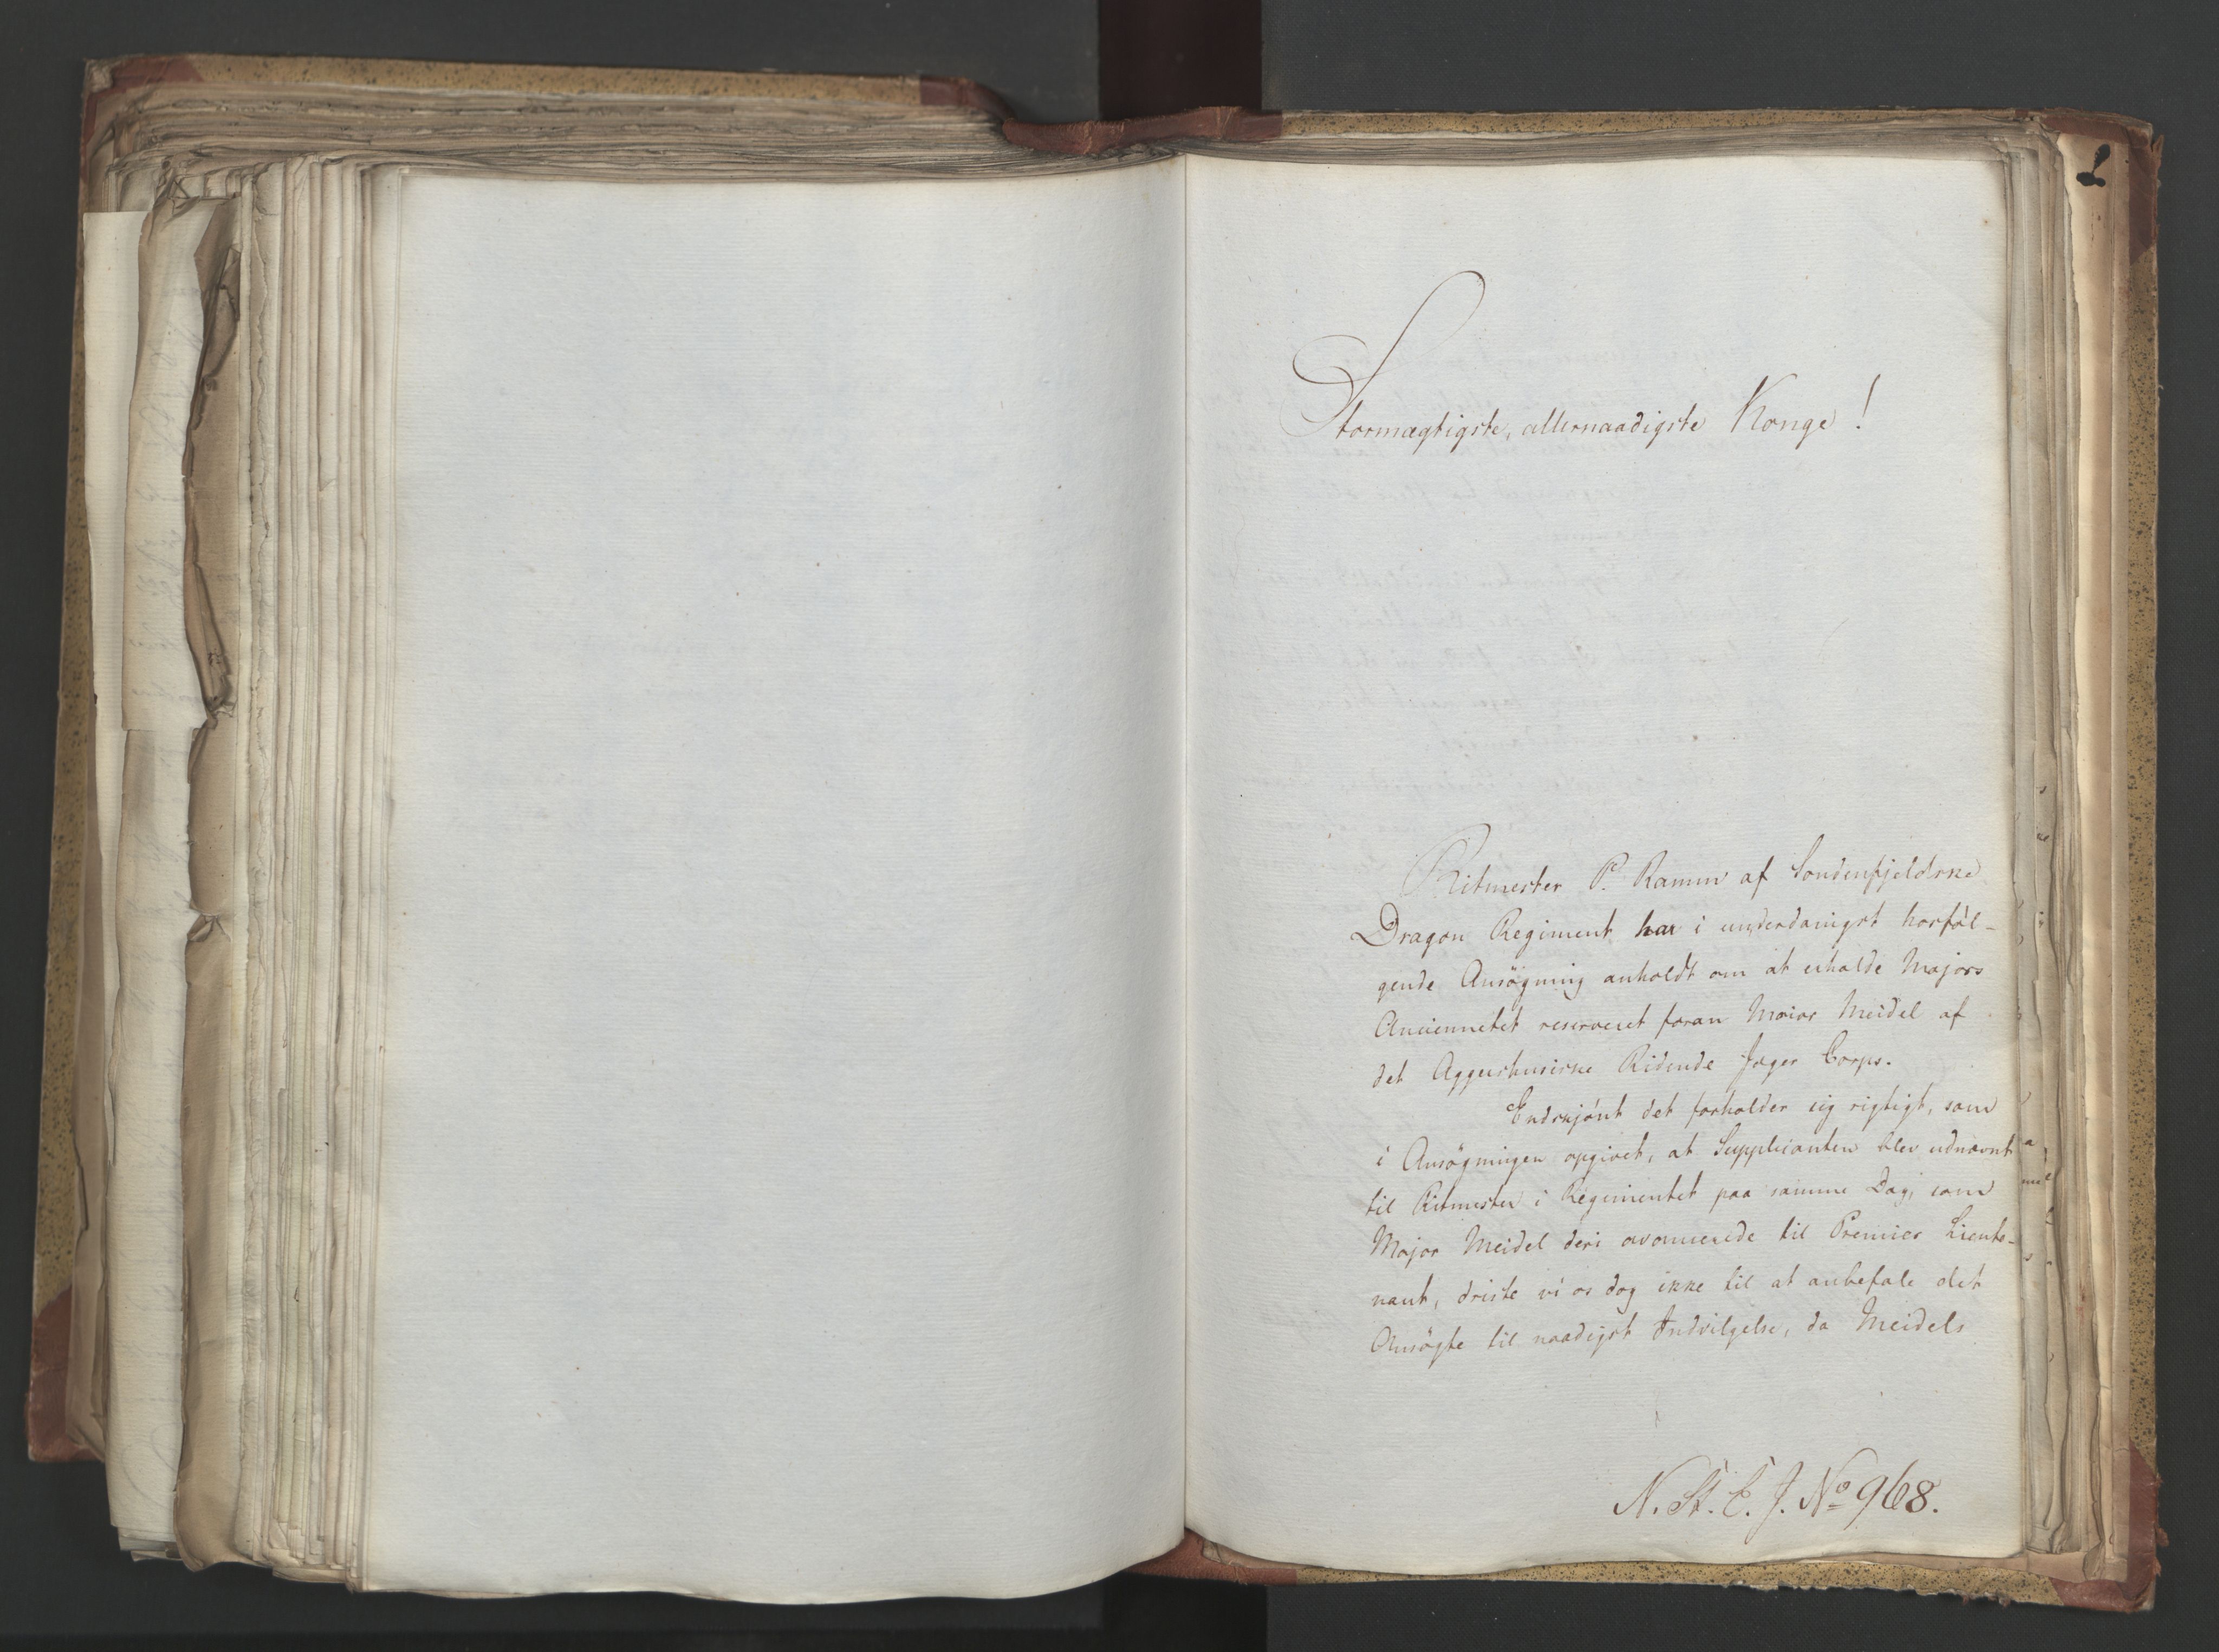 Stormægtigste, allernaadigste Konge!
Ritmester P. Ramm af Søndenfjeldske
Dragon Regiment har i underdanigst hosføl-
gende Ansøgning anholdt om at erholde Majors
Anciennetet reserveret foran Maior Meidel af
det Aggershusiske Ridende Jæger Corps.
Endskjønt det forholder sig rigtigt, som
i Ansøgningen opgivet, at Supplicanten blev udnævnt
til Ritmester i Regimentet paa samme Dag, som
Major Meidel deri avancerede til Premier Lieute-
nant, driste vi os dog ikke til at anbefale det
Ansøgte til naadigst Indvilgelse, da Meidels
N. St. E. J. No 968.